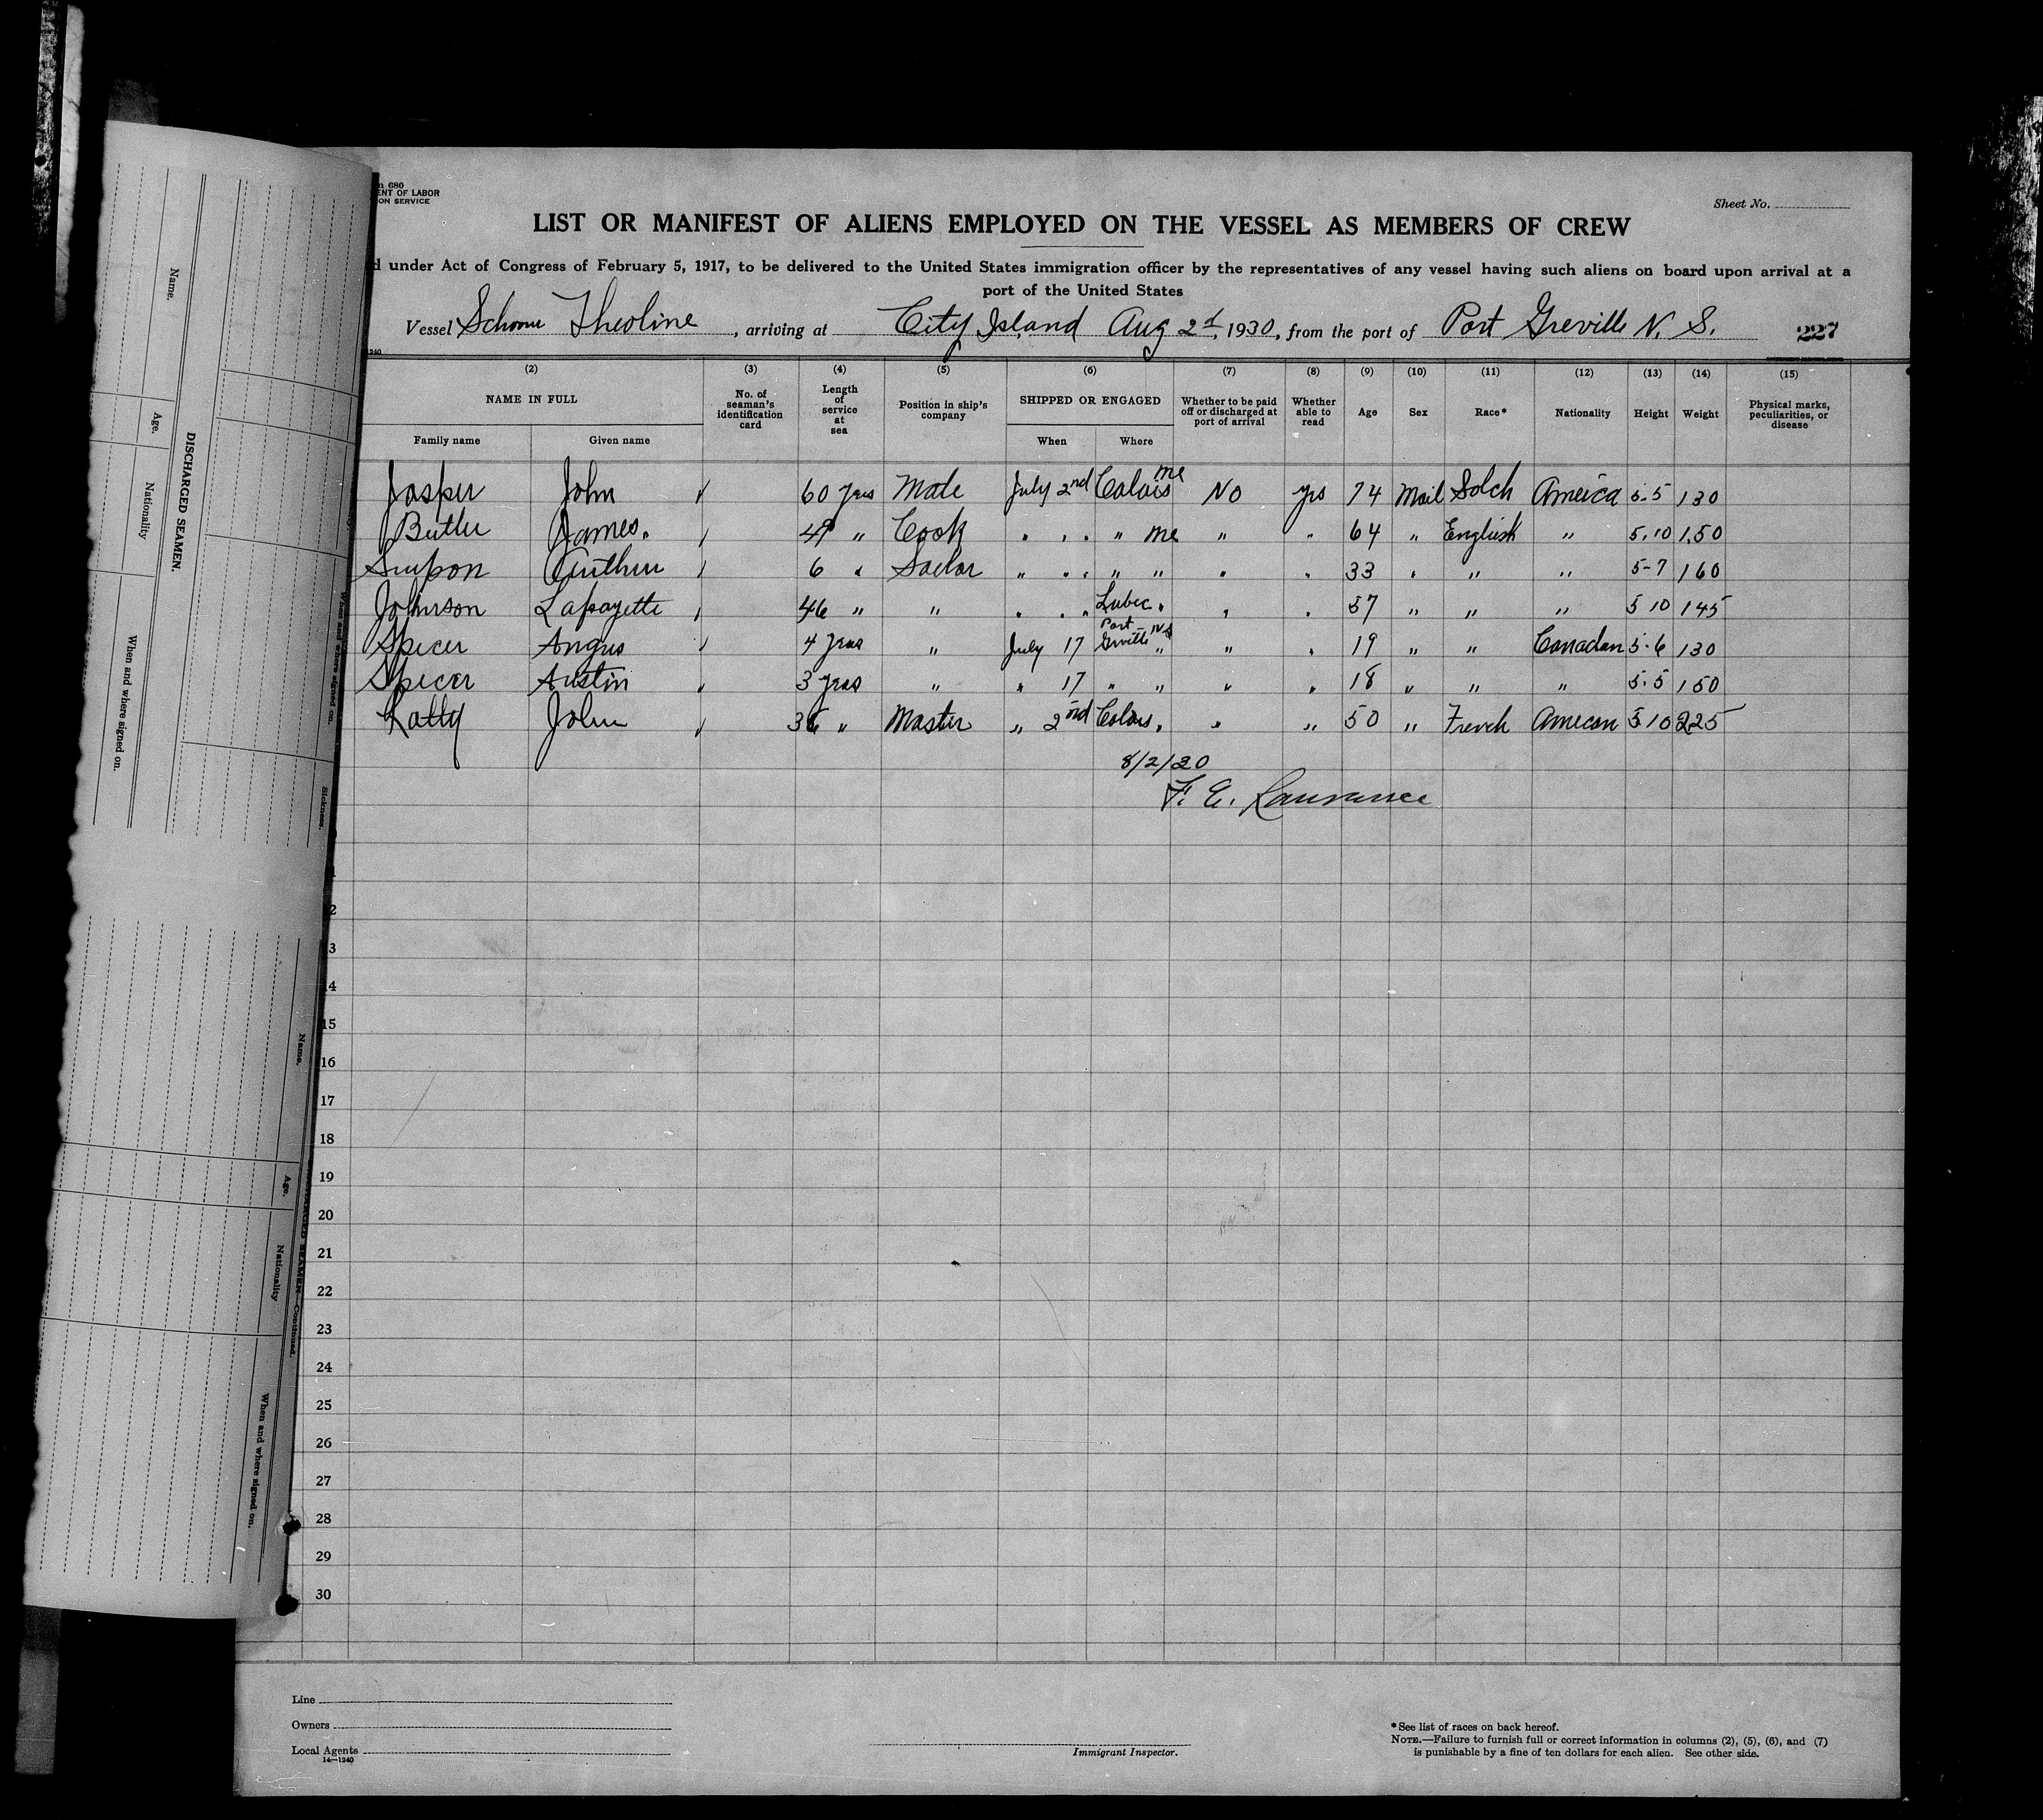 n 680
ENT OF LABOR
ON SERVICE
Sheet No.
LIST OR MANIFEST OF ALIENS EMPLOYED ON THE VESSEL AS MEMBERS OF CREW
d under Act of Congress of February 5, 1917, to be delivered to the United States immigration officer by the representatives of any vessel having such aliens on board upon arrival at a
port of the United States
Vessel Theoline, arriving at City Island Aug 2d, 1930, from the port of Port Greville N. S. 227
(2) (3) (4) (5) (6) (7) (8) (9) (10) (11) (12) (13) (14) (15)
NAME IN FULL No. of seaman's identification card Length of service at sea Position in ship's company SHIPPED OR ENGAGED Whether to be paid off or discharged at port of arrival Whether able to read Age Sex Race* Nationality Height Weight Physical marks, peculiarities, or disease
Family name Given name When Where
Jasper John 60 yrs Mate July 2nd Calais me No yes 74 Mail Solch America 5-5 130
Butler James. 49 " Cook " " " " me " " 64 " English " 5,10 150
Simpson Arthur 6 " Saelor " " " " " " " 33 " " " 5-7 160
Johnson Lafayette 46 " " " " " Lubec " " " 57 " " " 5 10 145
Spicer Angus 4 yras " July 17 Port Grville N S " " " 19 " " Canadan 5-6 130
Spicer Austin 3 yras " " 17 " " " " 18 " " " 5.5 150
John 36 " Master " 2nd Calais " " " 50 " French Amecan 5.10 225
8/2/30
F. E. Lawrance
2
3
4
15
16
17
18
19
20
21
22
23
24
25
26
27
28
29
30
Line
Owners
Local Agents
14—1240
Immigrant Inspector.
*See list of races on back hereof.
NOTE.—Failure to furnish full or correct information in columns (2), (5), (6), and (7)
is punishable by a fine of ten dollars for each alien. See other side.
DISCHARGED SEAMEN.
Name.
Age.
Nationality
When and where signed on.
Sickness.
DISCHARGED SEAMEN—Continued.
Name.
Age.
Nationality
When and where signed on.